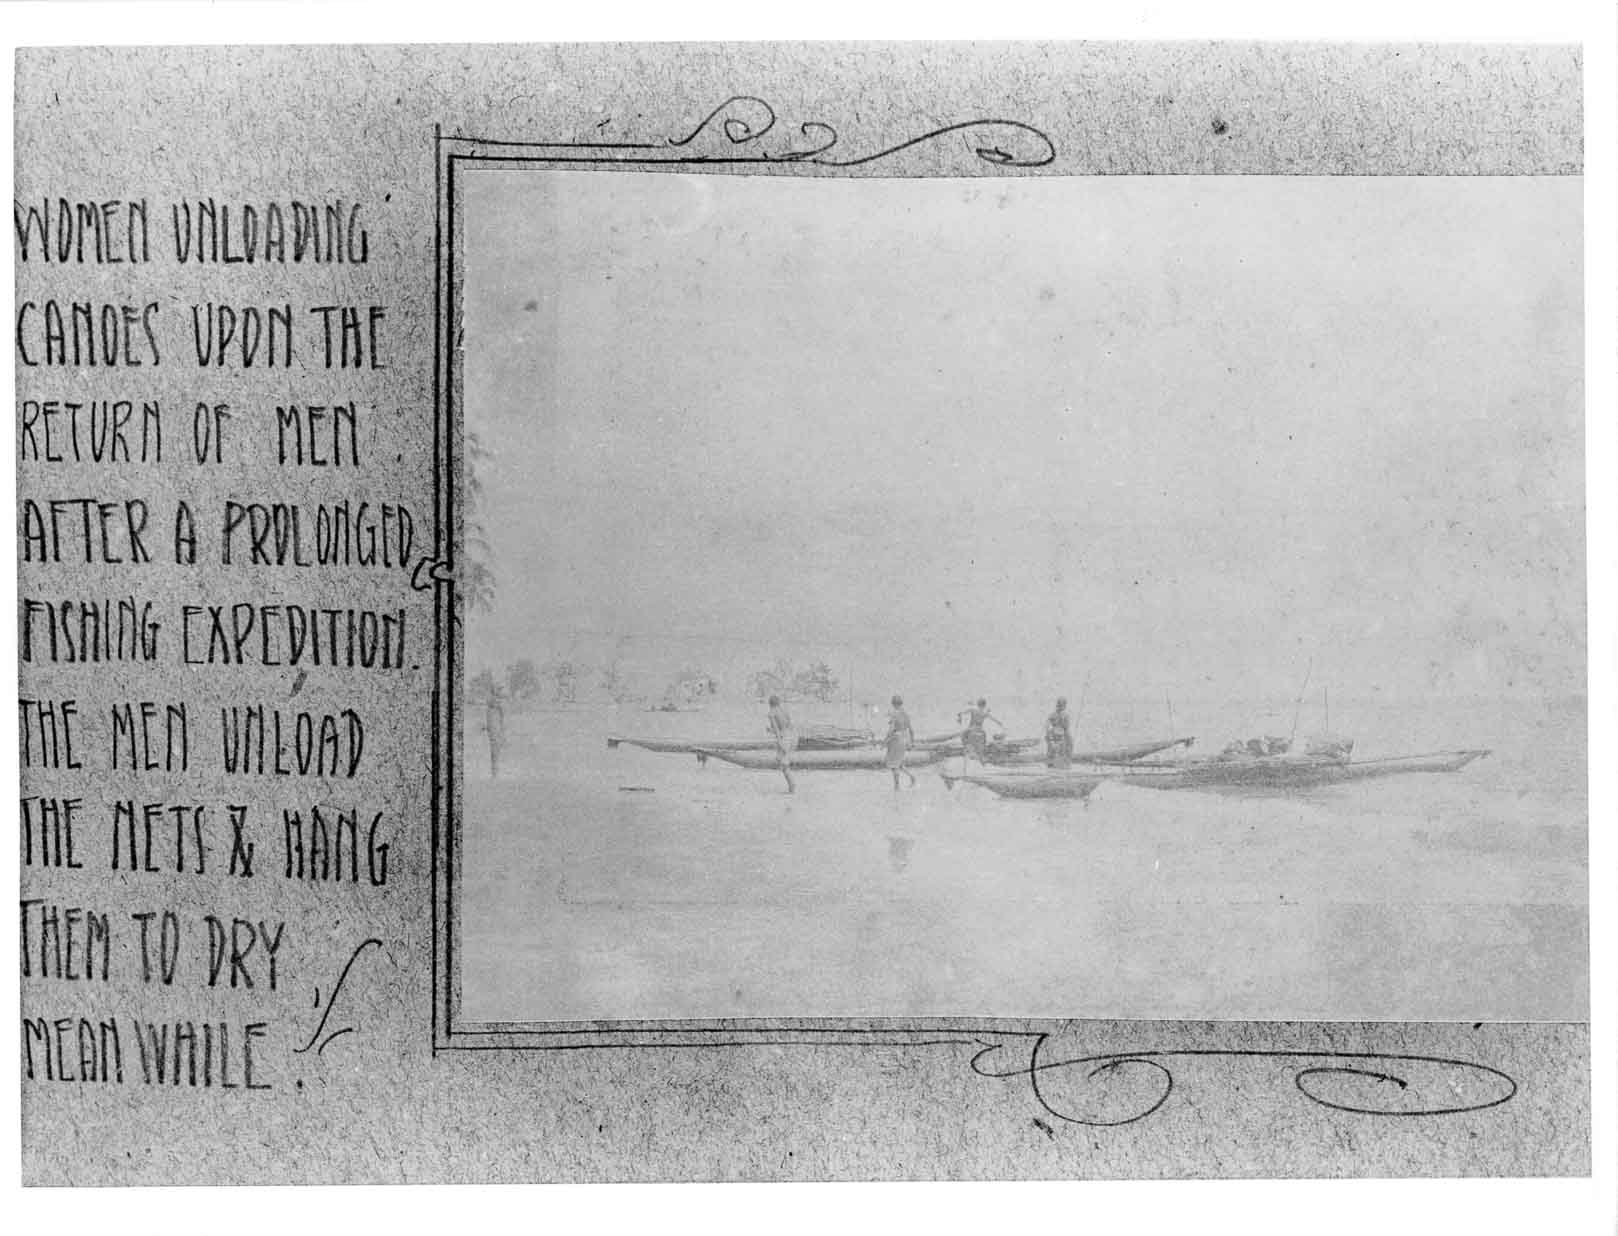 WOMEN UNLOADING
CANOES UPON THE
RETURN OF MEN
AFTER A PROLONGED
FISHING EXPEDITION.
THE MEN UNLOAD
THE NETS & HANG
THEM TO DRY
MEANWHILE.